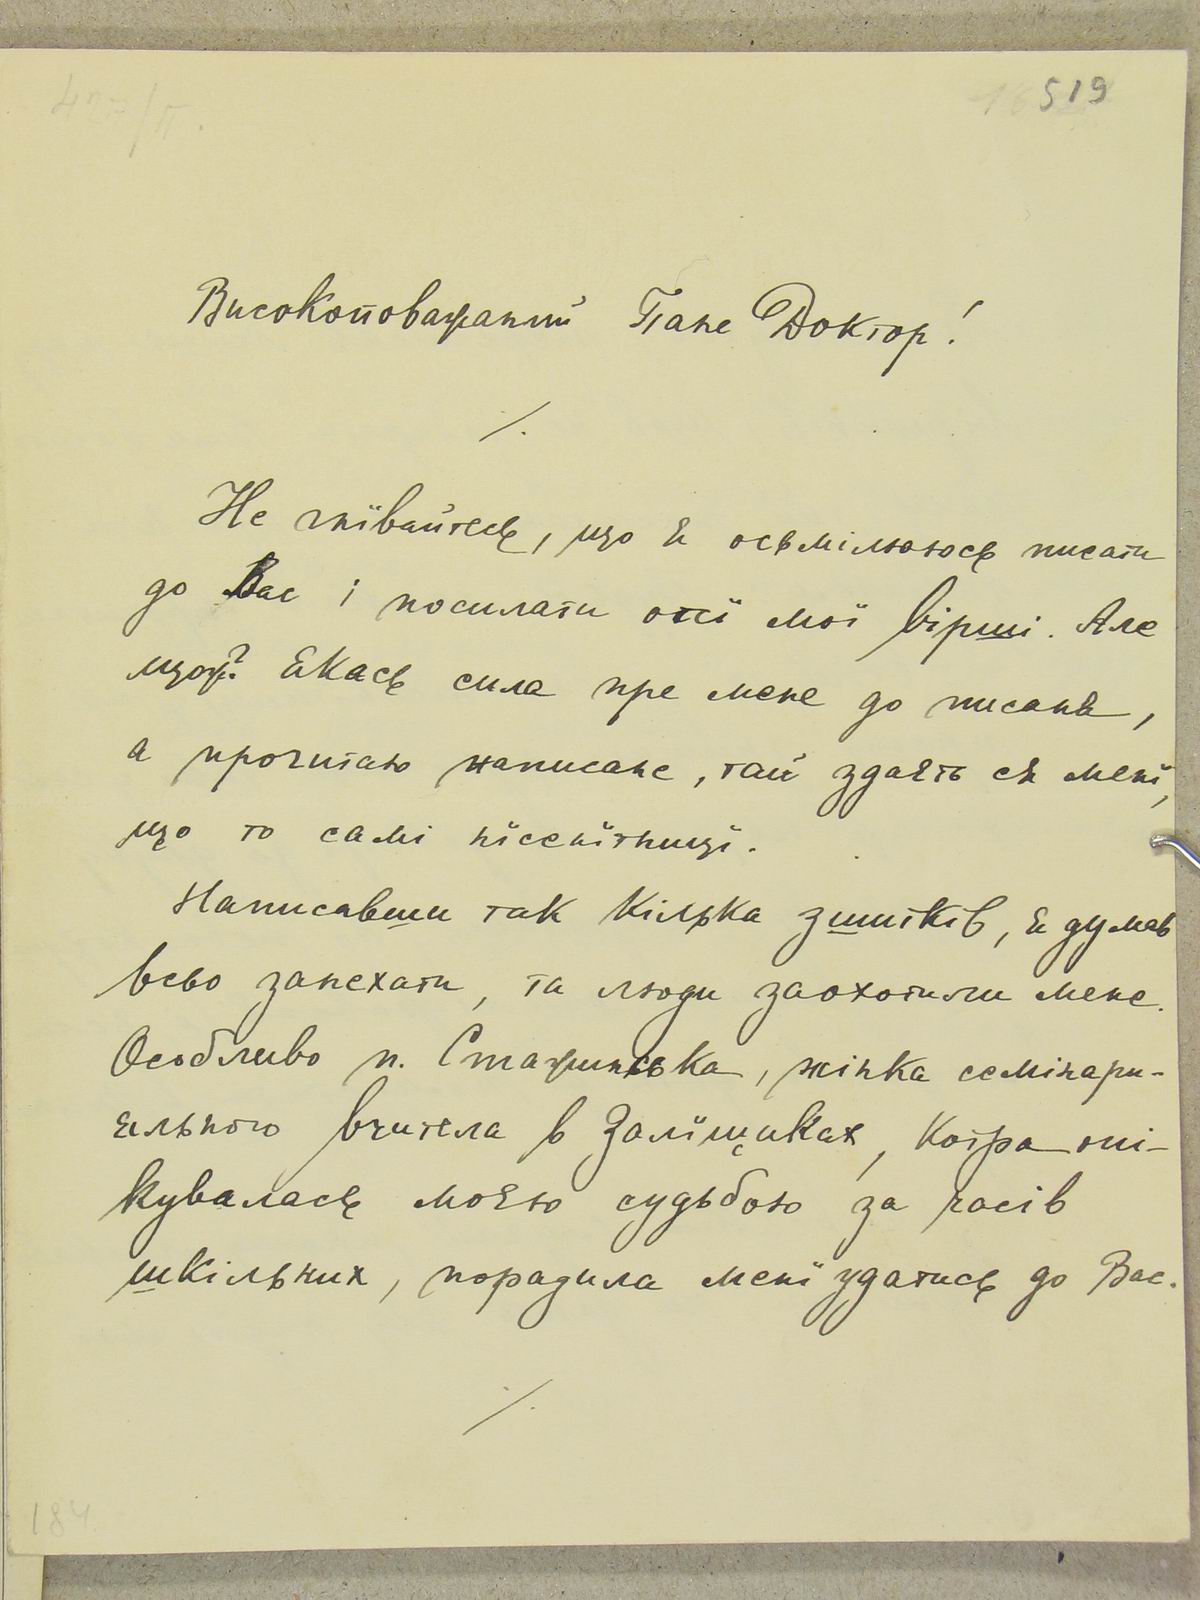 427/П.
519
Високоповажаний Пане Доктор!
/.
Не гнївайтесь, що я осьмілююсь писати
до Вас і посилати отсї мої вірші. Але
щож? Якась сила пре мене до писаня,
а прочитаю написане, тай здаєть ся менї,
що то самі нїсенїтницї.
Написавши так кілька зшитків, я думав
всьо занехати, та люди заохотили мене.
Особливо п. жінка семінари-
яльного вчителя в Залїщиках, котра опі-
кувалась моєю судьбою за часів
шкільних, порадила менї удатись до Вас.
/.
184